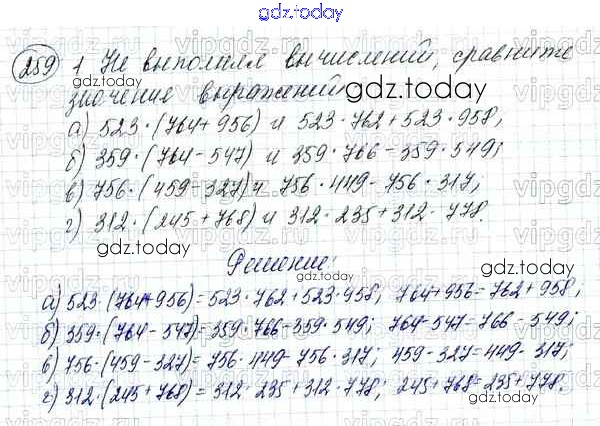 gdz.today
259 1 Не выполняя вычислений, сравните
gdz.today
значение выражений
gdz.today
а) 523·(764+956) и 523·762+523·958;
б) 359·(764-547) и 359·766-359·549;
в) 756·(459-327) и 756·449-756·317;
gdz.today
г) 312·(245+768) и 312·235+312·778.
gdz.today
Решение:
gdz.today
а) 523·(764+956)=523·762+523·958; 764+956=762+958;
б) 359·(764-547)=359·766-359·549; 764-547=766-549;
в) 756·(459-327)=756·449-756·317; 459-327=449-317;
г) 312·(245+768)=312·235+312·778; 245+768=235+778.
gdz.today